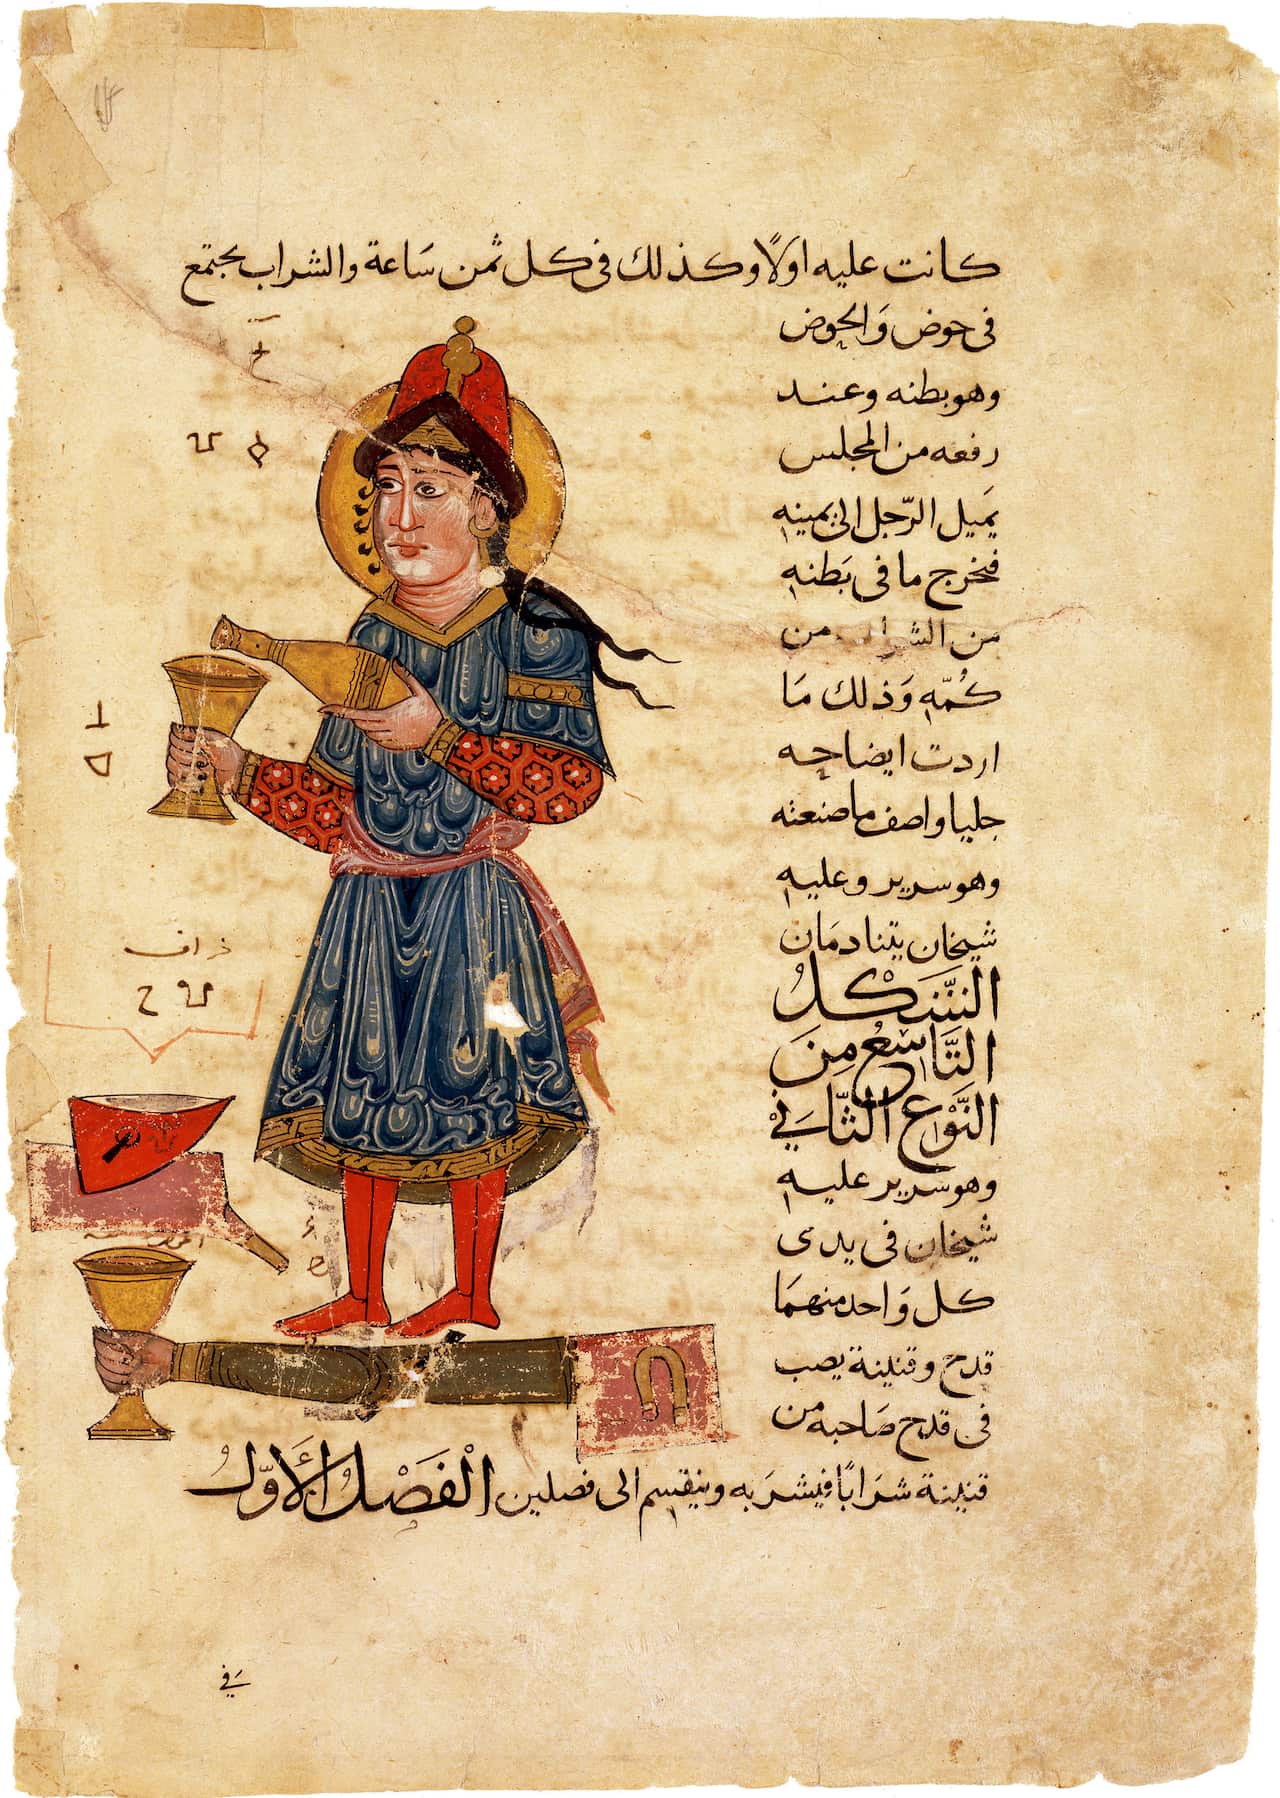 كانت عليه اولًا وكذلك فى كل ثمن سَاعة والشراب يجتمع
فى حوض وَالحوض
وهو بطنه وعند
رفعه من المجلس
يَميل الرّجل الىٰ يمينه
فيخرج ما فى بَطنه
من الشراب من
كُمّه وَذلك مَا
اردت ايضاحه
جليا واصف ما صنعته
وهو سرير وعليه
شيخان يتنادمَان
الشَّكْلُ
التَّاسِعُ مِنَ
النَّوْع الثَّانَي
وهو سَرير عليه
شيخان فى يدى
كل وَاحد منهمَا
قدح وقنينة يصب
فى قدح صَاحبه من
قنينة شرَابًا فيشرَ به وينقسم الى فصلين الْفَصْلُ الأَوّلُ
خ
ذراف
ح
فَي